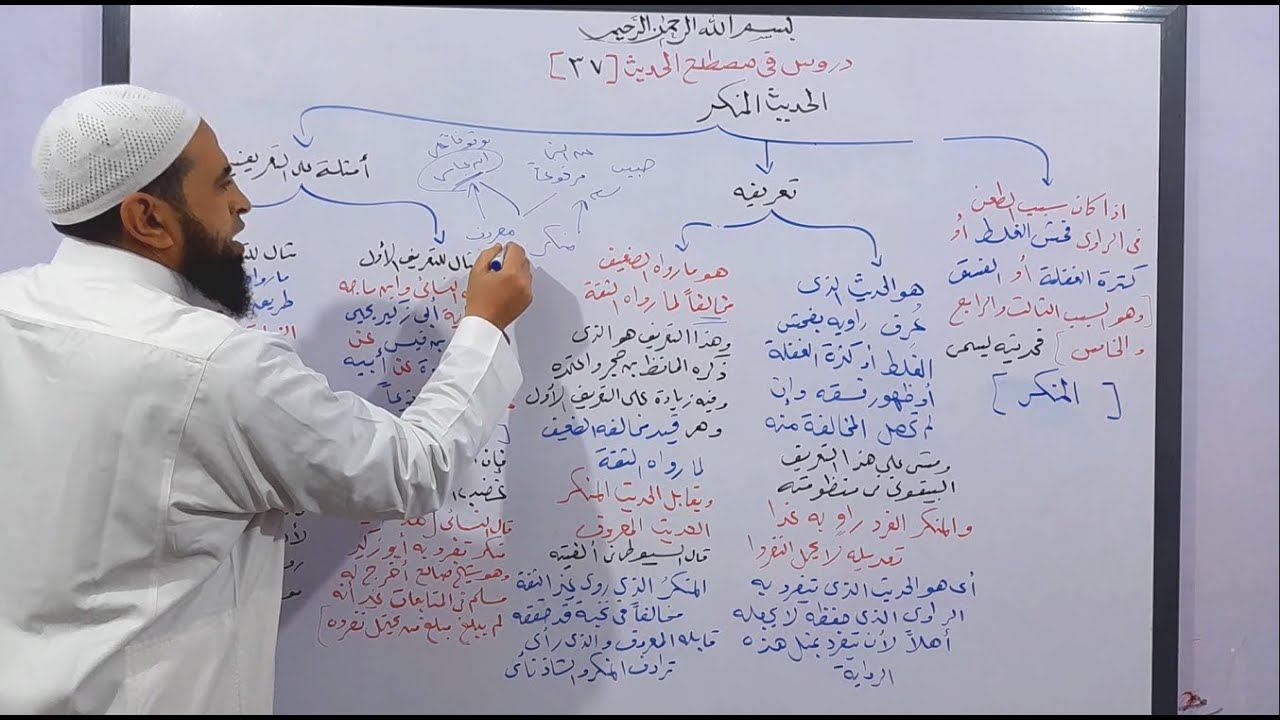 بسم الله الرحمن الرحيم
دروس في مصطلح الحديث [٣٧]
الحديث المنكر
اذا كان سبب الطعن
في الراوي فحش الغلط أو
كثرة الغفلة أو الفسق
[وهو السبب الثالث والرابع
والخامس] فحديثه يسمى
[المنكر]
تعريفه
هو الحديث الذي
عُرف راويه بفحش
الغلط أو كثرة الغفلة
أو ظهور فسقه وإن
لم تحصل المخالفة منه
ومشى علي هذا التعريف
البيقوني في منظومته
والمنكر الفرد راوٍ به غدا
تعديله لا يحمل التفردا
أي هو الحديث الذي تيفرد به
الراوي الذي حفظه لا يجعله
أهلاً لأن يتفرد بمثل هذه
الرواية
هو ما رواه الضعيف
مخالفاً لما رواه الثقة
وهذا التعريف هو الذي
ذكره الحافظ بن حجر واعتمده
وفيه زيادة على التعريف الأول
وهر قيد مخالفة الضعيف
لما رواه الثقة
ويقابل الحديث المنكر
الحديث المعروف
قال السيوطي في ألفيته
المنكرُ الذي روى غير الثقة
مخالفاً في نخبة قد حققه
قابله المعروف والذي رأى
ترادف المنكر والشاذ نأى
حبيب
عن النبي
مرفوعاً
موقوفا على
ابن عباس
منكر
معروف
أمثلة على التعريفين
مثال للتعريف الأول
النسائي وابن ماجه
أبي زكير يحيى
بن قيس عن
عن أبيه
فإن
غضب
قال النسائي [هذا
منكر تفرد به أبو زكير
وهو شيخ صالح أخرج له
مسلم في المتابعات غير أنه
لم يبلغ مبلغ من يحتمل تفرده]
مثال للت
ما رواه